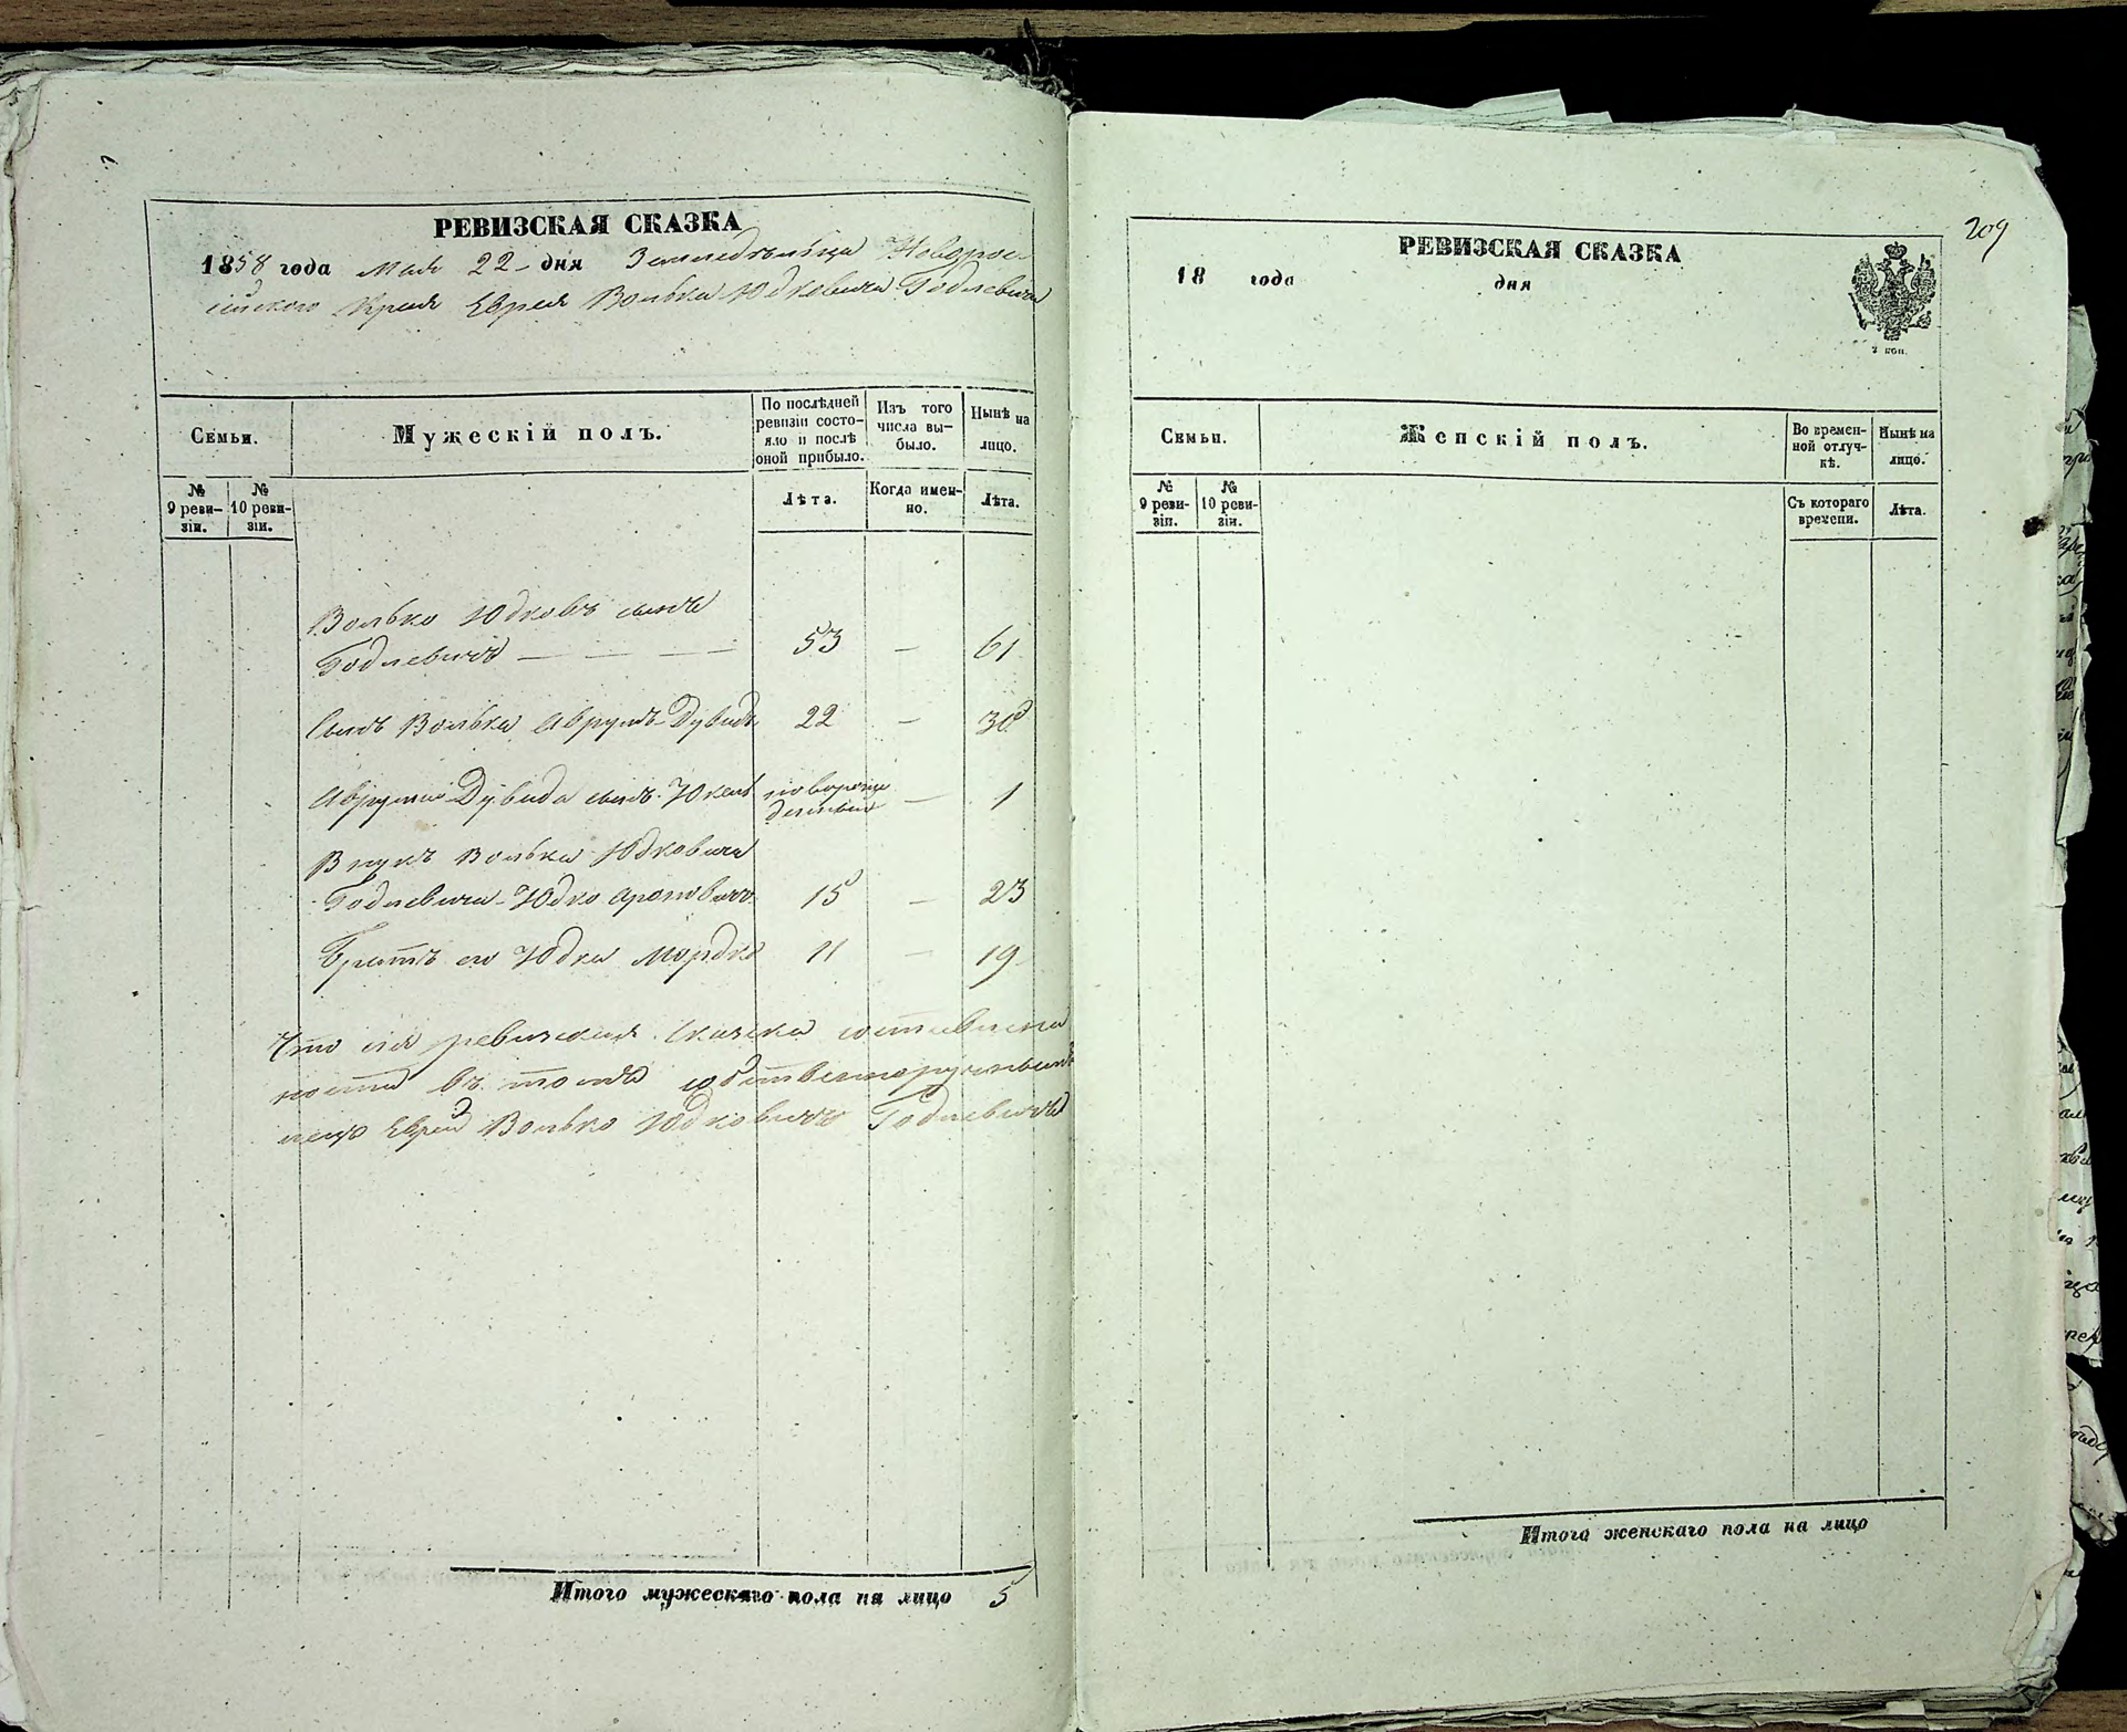 РЕВИЗСКАЯ СКАЗКА
1858 года Мая 22 дня Земледѣльца Новорос-
сійского Края Еврея Волька Юдковича Годлевича
Семьи.
Мужескій полъ.
По послѣдней ревизіи состо-яло и послѣ оной прибыло.
Изъ того числа вы-было.
Нынѣ на лицо.
№ 9 реви-зіи.
№ 10 реви-зіи.
Лѣта.
Когда имен-но.
Лѣта.
Волько Юдковъ сынъ
Годлевичъ — — — — 53 — 61
Сынъ Волька Аврумъ-Дувидъ 22 — 30
Аврума-Дувида сынъ новорож-
денный — 1
Внукъ Волька Юдковича
Годлевича-Юдко Ароновичъ 15 — 23
Братъ его Юдка Мордко 11 — 19
Что сія ревизская сказка составлена
въ томъ
Еврей Волько Юдковичъ Годлевичъ
Итого мужескаго пола на лицо 5
209
РЕВИЗСКАЯ СКАЗКА
18 года дня
2 коп.
Семьи.
Женскій полъ.
Во времен-ной отлуч-кѣ.
Нынѣ на лицо.
№ 9 реви-зіи.
№ 10 реви-зіи.
Съ котораго времени.
Лѣта.
Итого женскаго пола на лицо